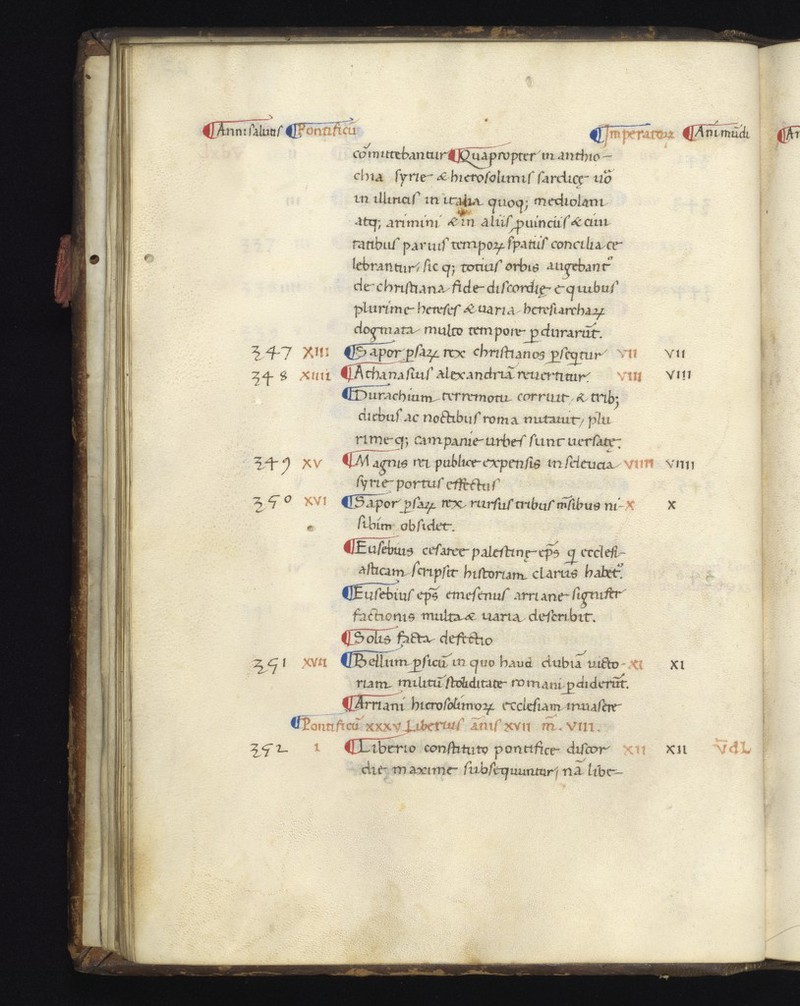 ¶Anni salutis ¶Pontificū ¶Imperatoꝝ ¶Ani mūdi
cōmittebantur ¶Quapropter in anthio-
chia syrie & hierosolimis sardicę uō
in illiricis in italia quoq; mediolani
atq; arimini & in aliis ꝓuinciis & ciui
tatibus paruis tempoꝝ spatiis concilia ce
lebrantur, sic q; totius orbis augebant᷑
de christiana fide discordię e quibus
plurime hereses & uaria heresiarchaꝝ
dogmata multo tempore ꝑdurarūt.
347 XIII ¶Sapor ꝑsaꝝ rex christianos ꝑseqtur VII VII
348 XIIII ¶Athanasius alexandriā reuertitur. VIII VIII
¶Durachium terremotu corruit & trib;
diebus ac noctibus roma nutauit, plu
rime q; campanie urbes sunt uersate.
349 XV ¶Magnis rei publice expensis in seleucia VIIII VIIII
syrie portus effectus
350 XVI ¶Sapor ꝑsaꝝ rex rursus tribus m̄sibus ni- X X
sibim obsidet.
¶Eusebius cesaree palestinę ep̄s q ecclesi-
asticam scripsit historiam clarus habet᷑.
¶Eusebius ep̄s emesenus arriane signifer
factionis multa & uaria describit.
¶Solis facta defectio
351 XVII ¶Bellum ꝑsicū in quo haud dubiā uicto- XI XI
riam militū stoliditate romani ꝑdiderūt.
¶Arriani hierosolimoꝝ ecclesiam inuasere
¶Pontificū XXXV Liberius ānis XVII m̄. VIII.
352 I ¶Liberio constituto pontifice discor XII XII V̄dL
die maxime subsequuntur, nā libe-